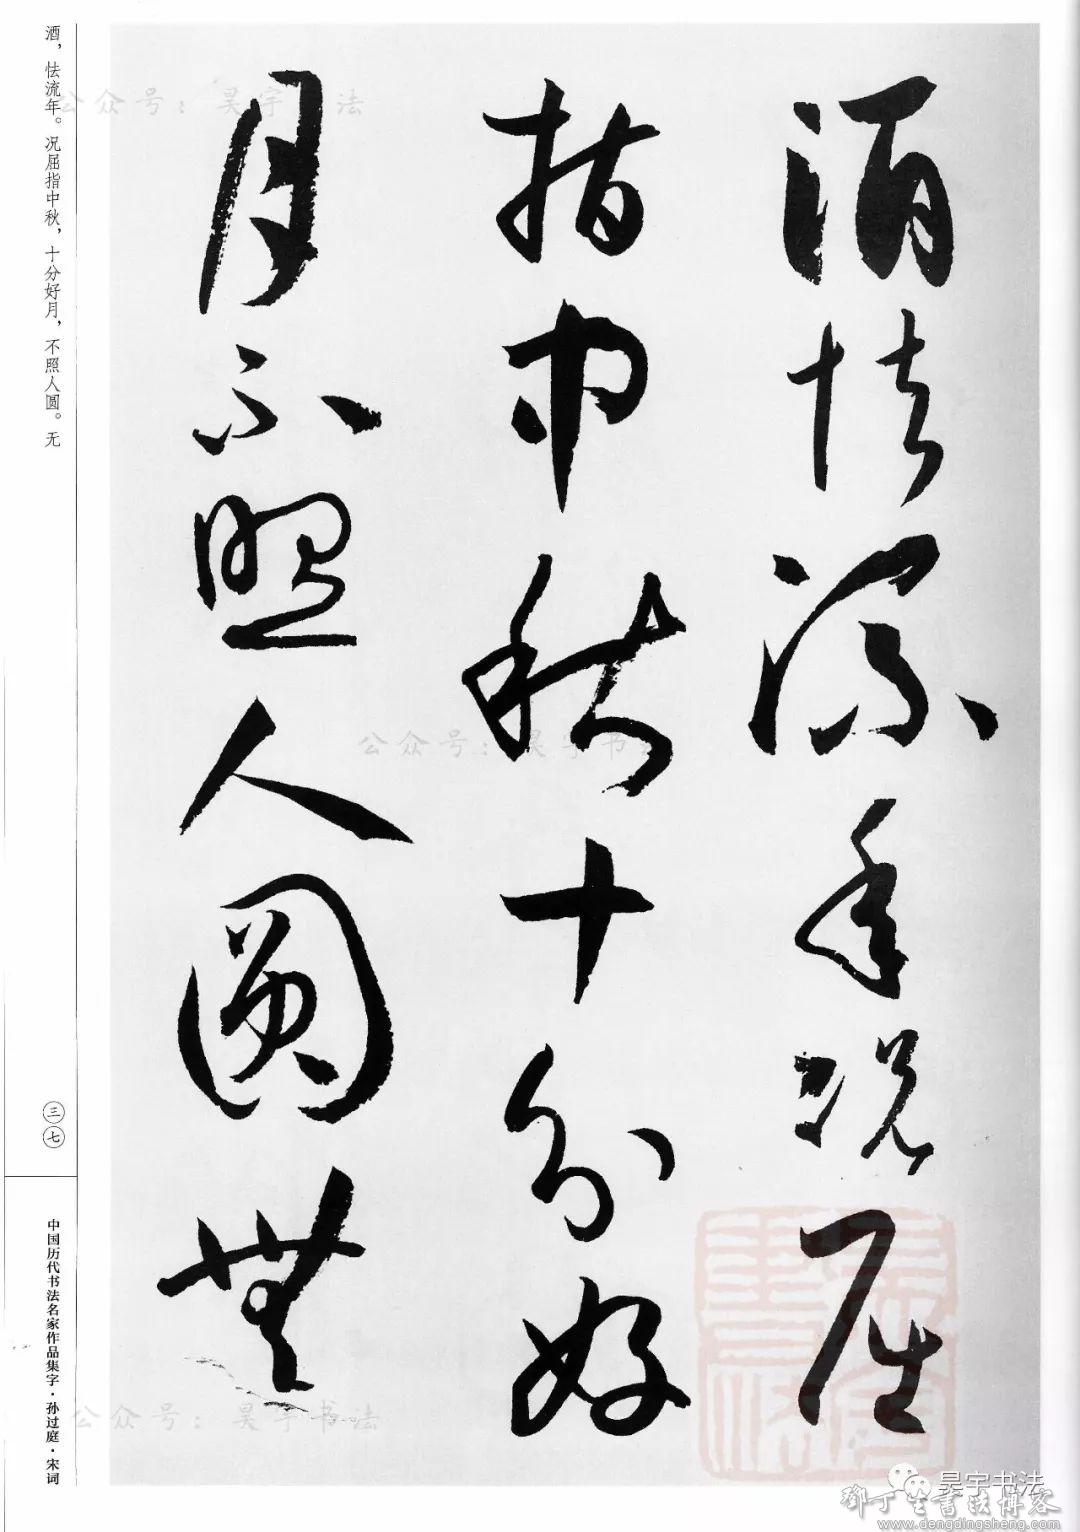 酒怯流年况屈
指中秋十分好
月不照人圆無
酒，怯流年。况屈指中秋，十分好月，不照人圆。无
三七
中国历代书法名家作品集字·孙过庭·宋词
公众号：昊宇书法
公众号：昊宇书法
公众号：昊宇书法
昊宇书法
鄧丁生書法博客
www.dengdingsheng.com